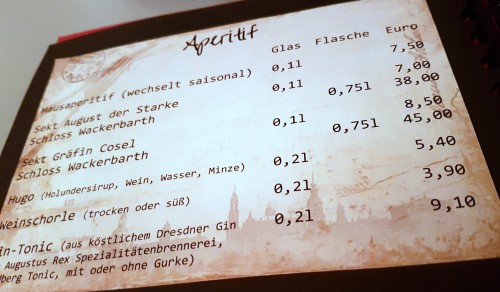 Aperitif
Glas Flasche Euro
Hausaperitif (wechselt saisonal) 0,1l 7,50
Sekt August der Starke 0,1l 7,00
Schloss Wackerbarth 0,75l 38,00
Sekt Gräfin Cosel 0,1l 8,50
Schloss Wackerbarth 0,75l 45,00
Hugo (Holundersirup, Wein, Wasser, Minze) 0,2l 5,40
Weinschorle (trocken oder süß) 0,2l 3,90
in-Tonic (aus köstlichem Dresdner Gin 0,2l 9,10
Augustus Rex Spezialitätenbrennerei,
berg Tonic, mit oder ohne Gurke)